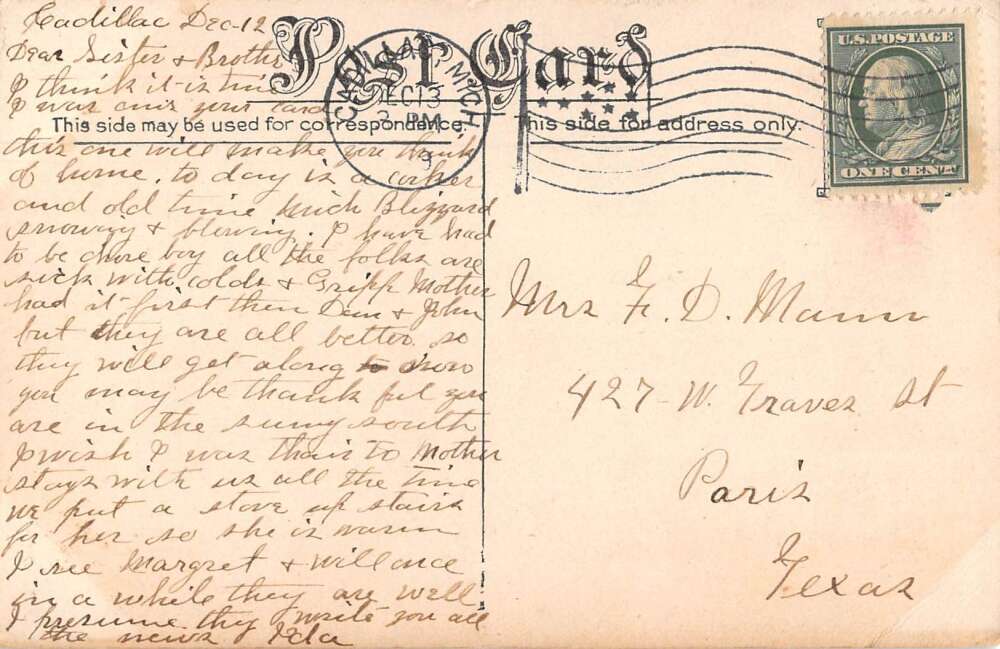 Cadillac Dec-12
Dear Sister & Brother
I think it is time
I was ans your card
this one will make you think
of home. to day is a corker
and old time Mich Blizzard
snowing & blowing. I have had
to be chore boy all the folks are
sick with colds & Gripp Mother
had it first then Dan & John
but they are all better so
they will get along now
you may be thank ful you
are in the sunny south
I wish I was thair to Mother
stays with us all the time
we put a stove up stairs
for her so she is warm
I see Margret & will once
in a while they are well
I presume they write you all
the news Ida
Post Card
This side may be used for correspondence.
This side for address only.
CADILLAC, MICH
DEC 13
PM
U.S. POSTAGE
ONE CENT
Mrs F. D. Mann
427-W. Graves St
Paris
Texas